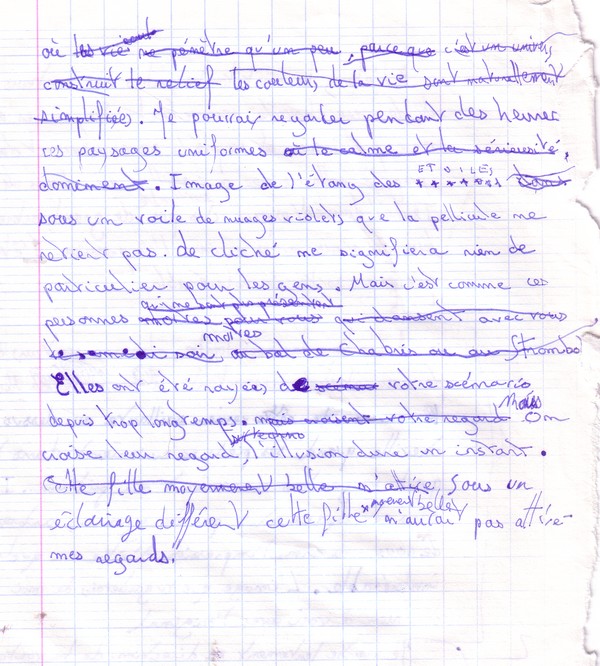 où les vie ne pénètre qu'un peu, parce que c'est un univers
construit te relief les couleurs de la vie sont naturellement
simplifiées. Je pourrais regarder pendant des heures
ces paysages uniformes où le calme et la sérieusité,
dominent. Image de l'étang des ETOILES
sous un voile de nuages violets que la pellicule ne
retient pas. Le cliché ne signifiera rien de
particulier pour les gens. Mais c'est comme ces
qui ne sont plus présentes
personnes mortes pour vous qui dansent avec vous
mortes
le samedi soir, au bal de Chabris ou au Strombol
Elles ont été rayées de votre scénario
depuis trop longtemps. mais croisent votre regard Mais On
croise leur regard, l'illusion dure un instant.
Cette fille moyennement belle m'attire. Sous un
éclairage différent cette fille moyennement belle n'aurait pas attiré
mes regards.